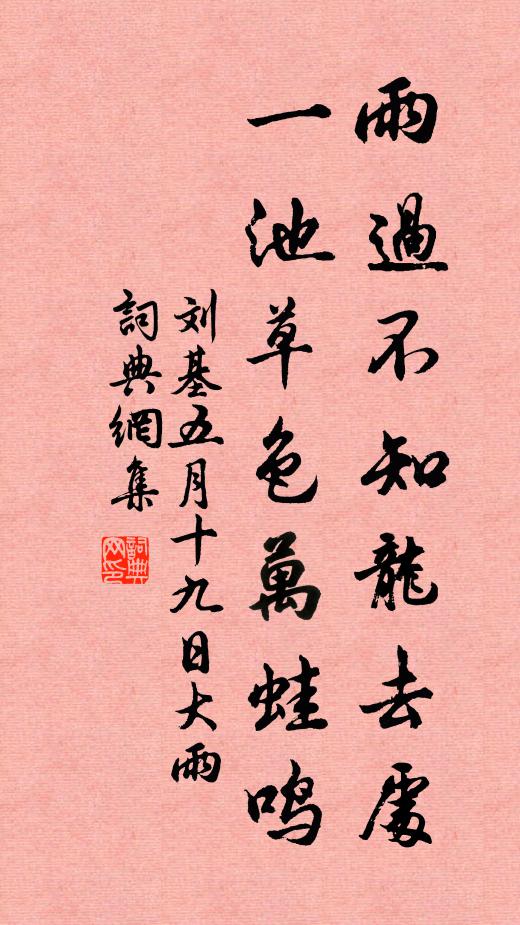 雨過不知龍去處
一池草色萬蛙鸣
刘基五月十九日大雨
詞典網集
詞典网印